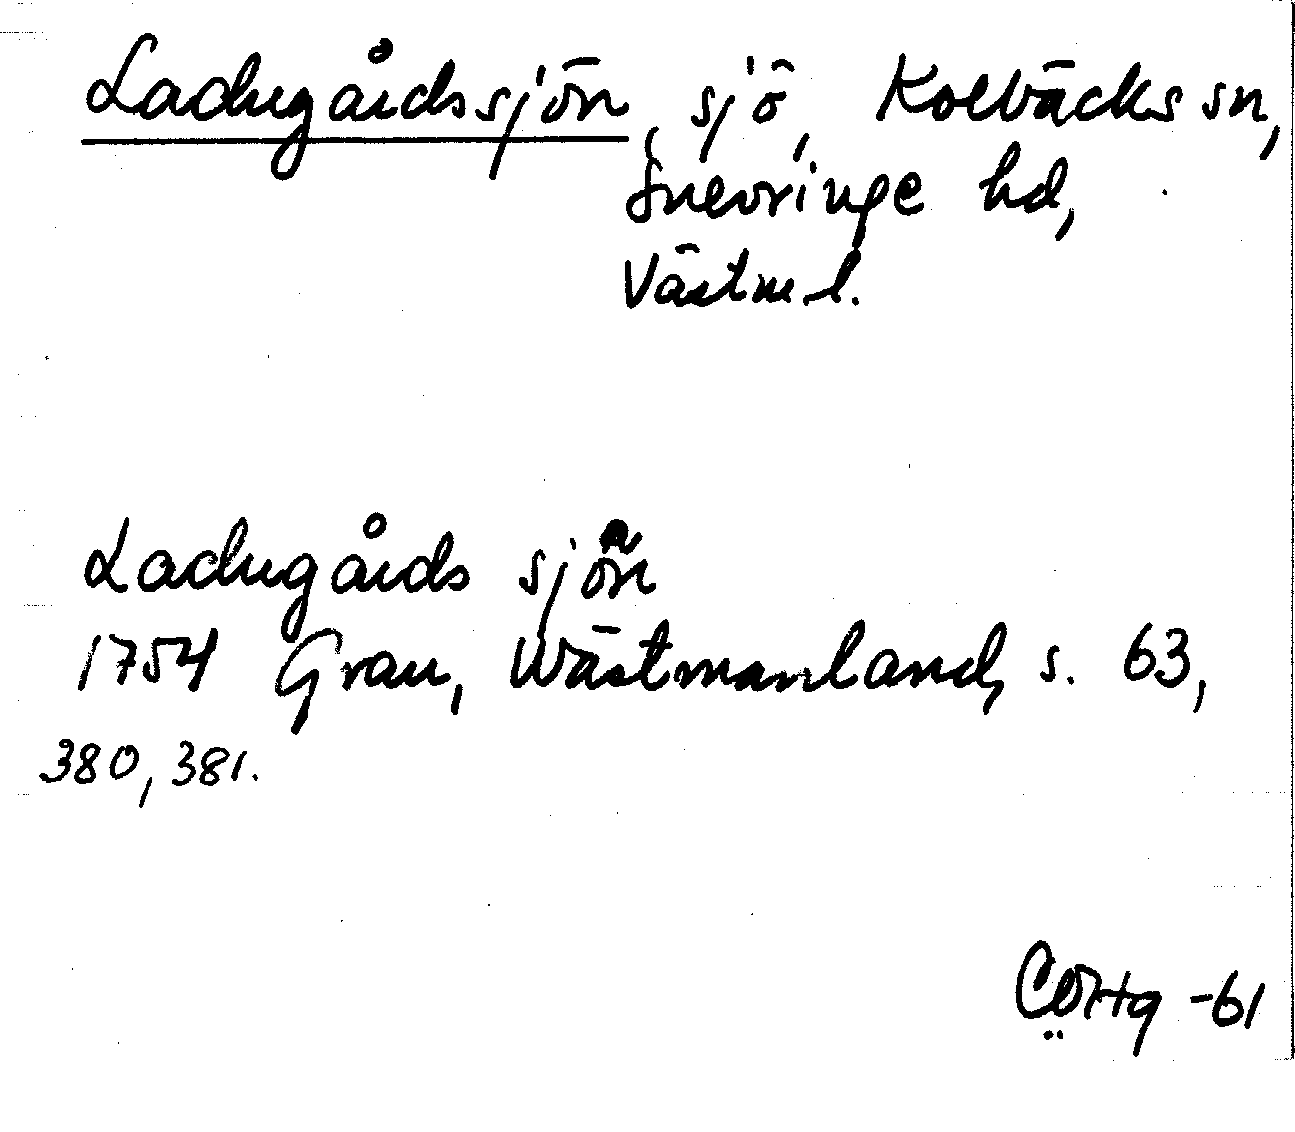 Ladugårdssjön, sjö, Kolbäcks sn,
Snevringe hd,
Västm.l.
Ladugårds sjön
1754 Grau, Wästmanland, s. 63,
380, 381.
-61